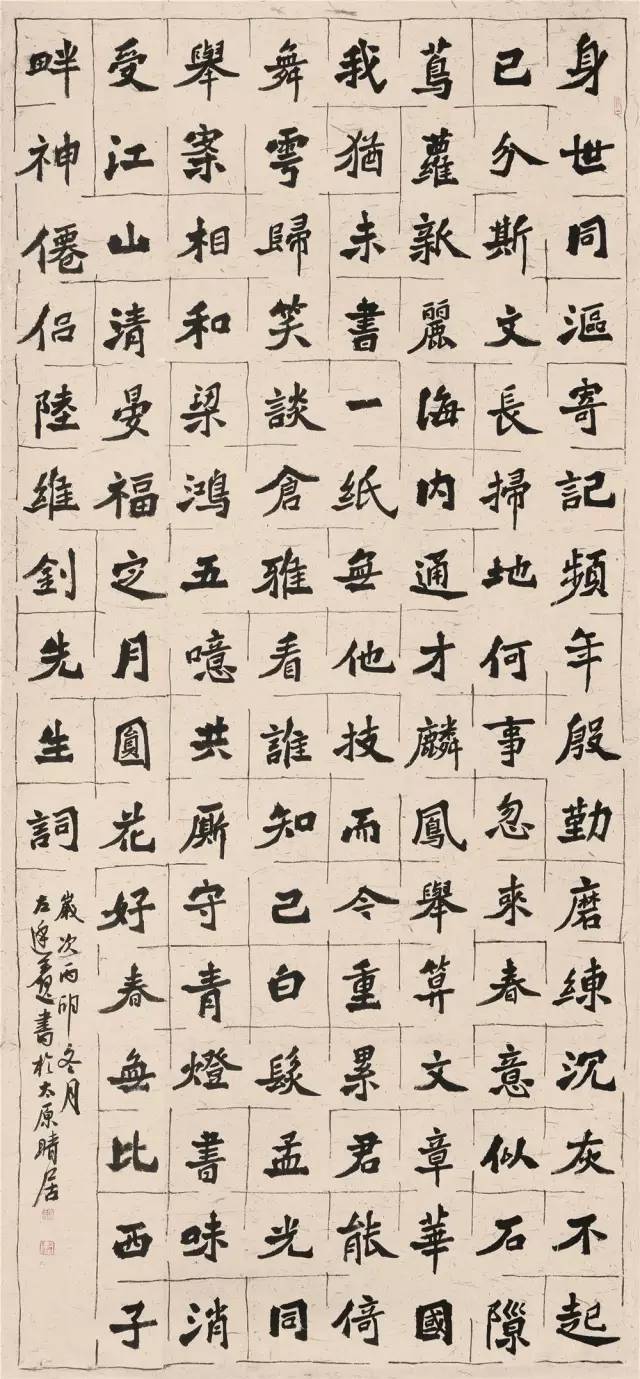 身世同漚寄記頻年殷勤磨練沉灰不起
已分斯文長掃地何事忽來春意似石隙
蔦蘿新麗海內通才麟鳳舉算文章華國
我猶未書一紙無他技而今重累君能倚
舞雩歸笑談倉雅看誰知己白髮孟光同
舉案相和梁鴻五噫共廝守青燈書味消
受江山清晏福定月圓花好春無比西子
畔神僊侶陸維釗先生詞
歲次丙卯冬月
書於太原晴居